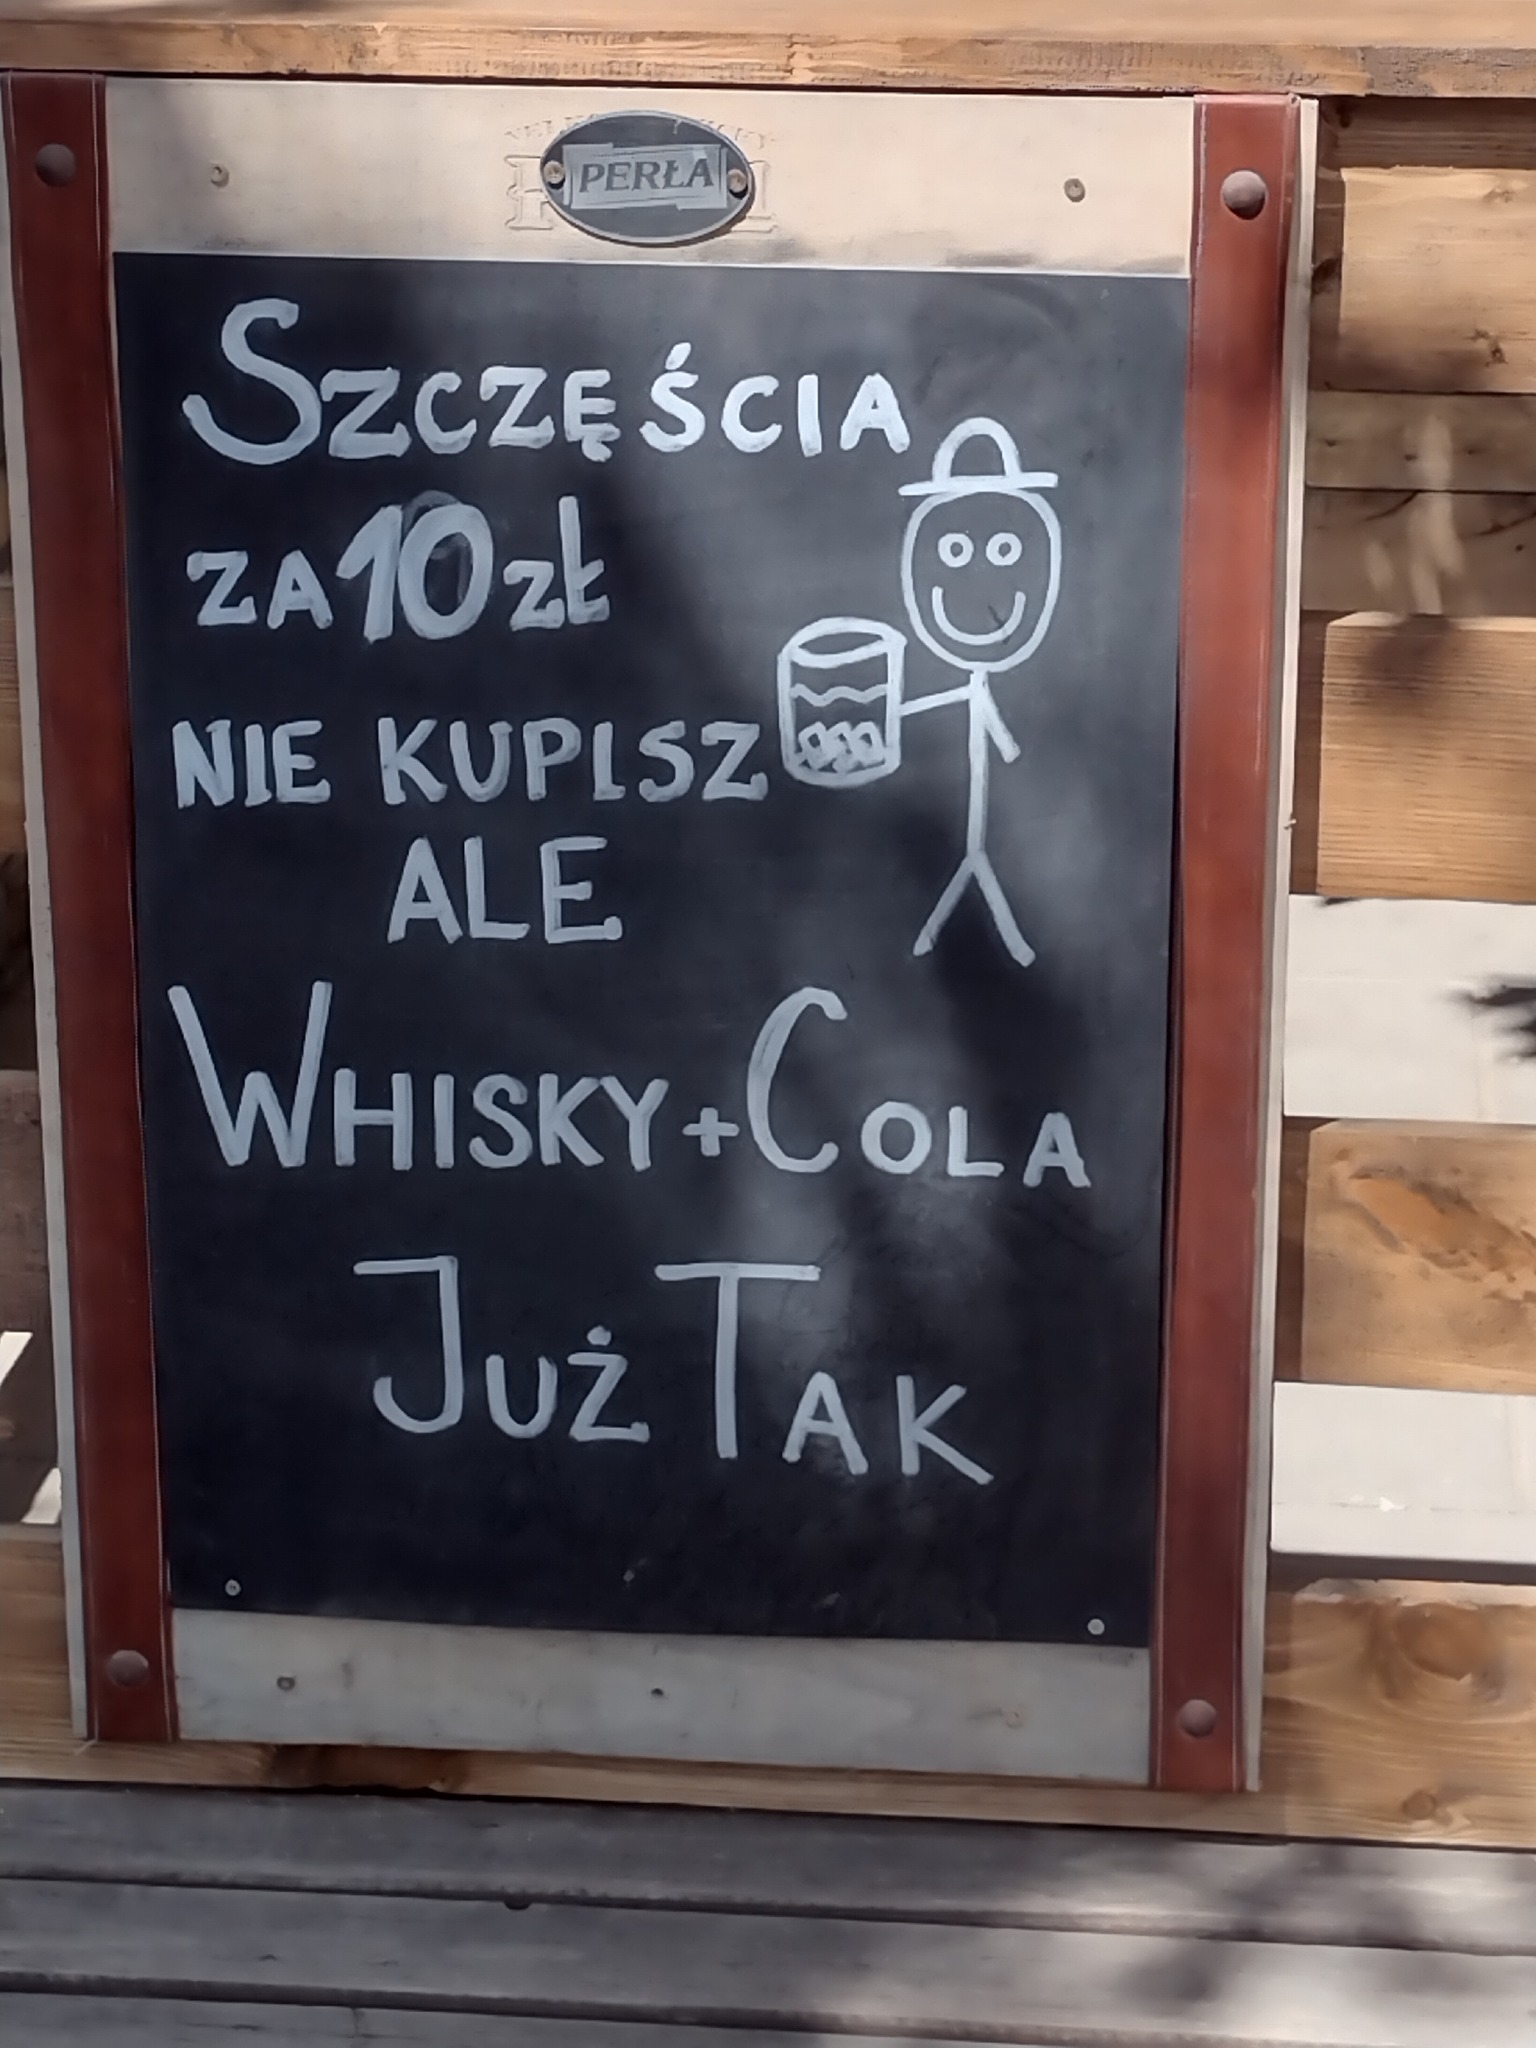 PERŁA
SZCZĘŚCIA
ZA 10 ZŁ
NIE KUPISZ
ALE
WHISKY+COLA
JUŻ TAK